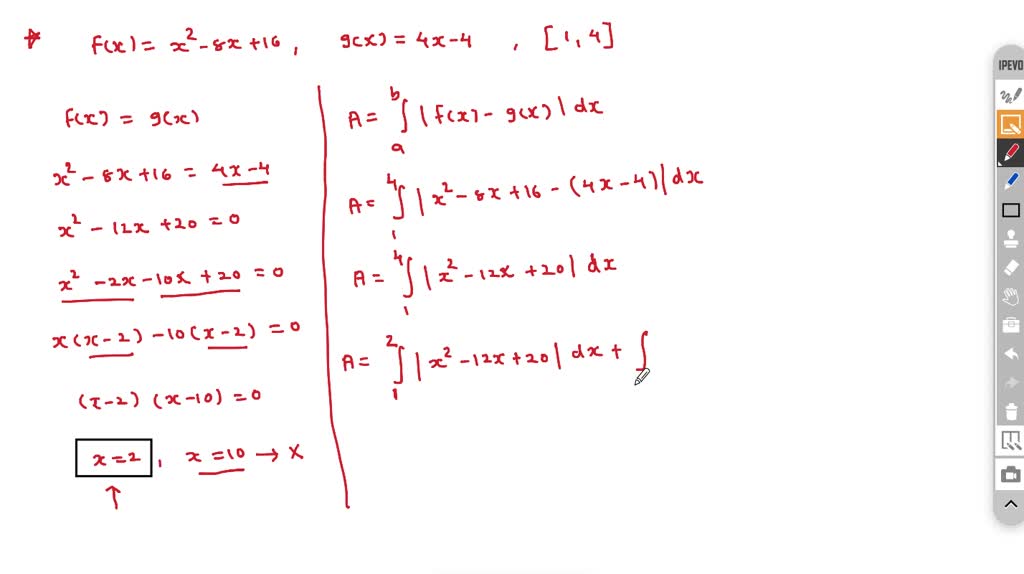 * f(x) = x² - 8x + 16 , g(x) = 4x - 4 , [1, 4]
f(x) = g(x)
x² - 8x + 16 = 4x - 4
x² - 12x + 20 = 0
x² - 2x - 10x + 20 = 0
x(x - 2) - 10(x - 2) = 0
(x - 2) (x - 10) = 0
x = 2 , x = 10 → X
↑
A = ∫ₐᵇ |f(x) - g(x)| dx
A = ∫₁⁴ |x² - 8x + 16 - (4x - 4)| dx
A = ∫₁⁴ |x² - 12x + 20| dx
A = ∫₁² |x² - 12x + 20| dx + ∫
IPEVO